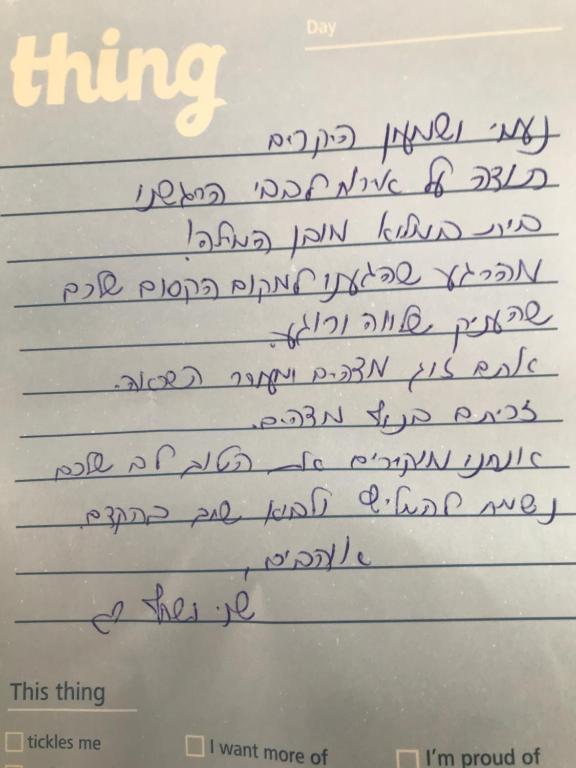 Day
thing
נעמי ושמעון היקרים
תודה על אירוח לבבי הרגשנו
בית במלוא מובן המילה!
מהרגע שהגענו למקום הקסום שלכם
שהעניק שלווה ורוגע.
אתם זוג מדהים ומעורר השראה.
זכיתם בנוף מדהים.
אנחנו מוקירים את הטוב לב שלכם
נשמח להמליץ ולבוא שוב בהקדם.
אוהבים,
שני ♡
This thing
tickles me
I want more of
I'm proud of